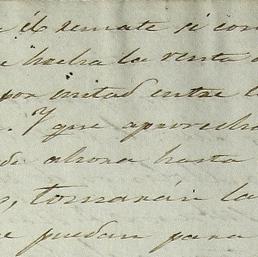 el remate si con
hecha la venta
por mitad entre
Y que aprovecha
de ahora hasta
tomarán la
puedan para